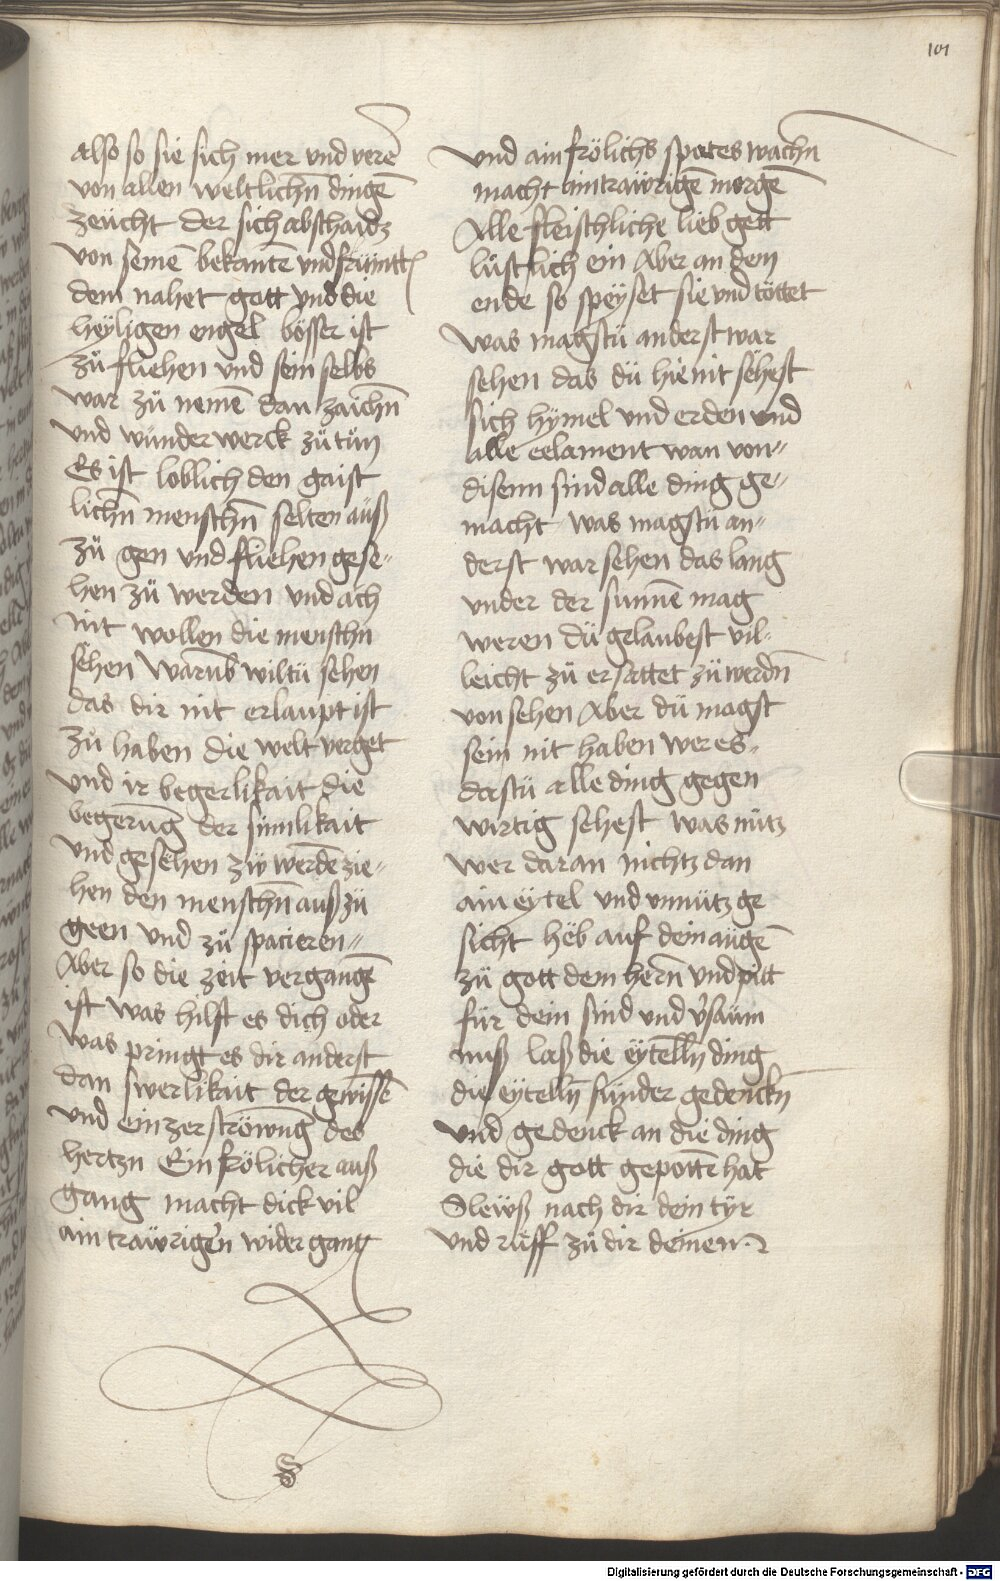 101
also so sie sich mer vnd vere᷑
von allen weltlichn̄ dingē
zeücht der sich abschaidz
von seinē bekantē vnd frünttē
dem nahet gott vnd die
heÿligen engel bösser ist
zů fliehen vnd sein selbs
war zü nemē dan zaichn̄
vnd wunderwerck zů tůn
Es ist loblich den gaist
lichn̄ menschn̄ selten auß
zü gen vnd fliehen gese⸗
hen zü werden vnd ach
nit wollen die menschn
sehen Warub̄ wiltü sehen
das dir nit erlaupt ist
zů haben die welt verget
vnd ir begerlikait die
begerūg der sinnlikait
vnd gesehen zw werdē zie⸗
hen den menschn̄ auß zü
geen vnd zů spacieren⸗
Aber so die zeit vergangē
ist was hilft es dich oder
was pringt es dir anderst
dan swerlikait der gewissē
vnd ein zerströwūg des
hertzn Ein frölicher auß
gang macht dick vil
ain träwrigen̄ wider gang
vnd ain frölichs spates wachn̄
macht ain träwrigē morgē
Alle fleischliche lieb gett
lüstlich ein Aber an dem
ende so speÿset sie vnd töttet
Was magstü anderst war
sehen das dü hie nit sehest
sich hÿmel vnd erden vnd
alle eelament wan von⸗
disenn sind alle ding ge⸗
macht was magstü an⸗
derst war sehen das lang
vnder der sunnē mag
weren dü gelaubest vil⸗
leicht zů ersattet zü werdn̄
von sehen Aber dü magst
sein nit haben wer es⸗
dastü alle ding gegen
wirtig sehest was nütz
wer daran nichtz dan
ain eÿtel vnd vnnütz ge
sicht heb auf dein augē
zü gott dem hern̄ vnd pitt
für dein sünd vnd v᷑säüm
nuß laß die eÿtelln̄ ding
die eÿtelln̄ sünder gedenckn̄
vnd gedenck an die ding
die dir gott gepottē hat
Slewß nach dir dein tÿr
vnd rüff zů dir deinen